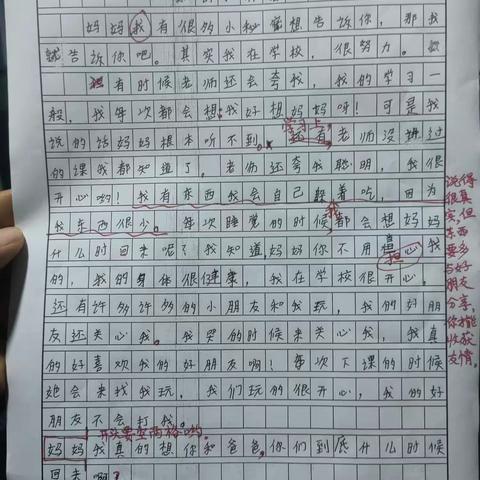 妈妈我有很多小秘密想告诉你，那我
就告诉你吧。其实我在学校，很努力。
有时候老师还会夸我，我的学习一
般，我每次都会想：我好想妈妈呀！可是我
说的话妈妈根本听不到。学习上，还有老师没讲过
的课我都知道了，老师还夸我聪明，我很
开心哟！我有东西我会自己躲着吃，因为
我东西很少。每次睡觉的时候我都会想妈妈
什么时回来呢？我知道妈妈你不用担心我
的，我的身体很健康，我在学校很开心。
还有许多许多的小朋友和我玩，我的好朋
友还关心我。我哭的时候来关心我，我真
的好喜欢我的好朋友啊！每次下课的时候
她会来找我玩，我们玩的很开心，我的好
朋友不会打我。
开头要空两格哟。
妈妈我真的想你和爸爸，你们到底什么时候
回来啊？
说得
很真
实，但
东西
要多
与好
朋友
分享，
你才能
收获
友情。